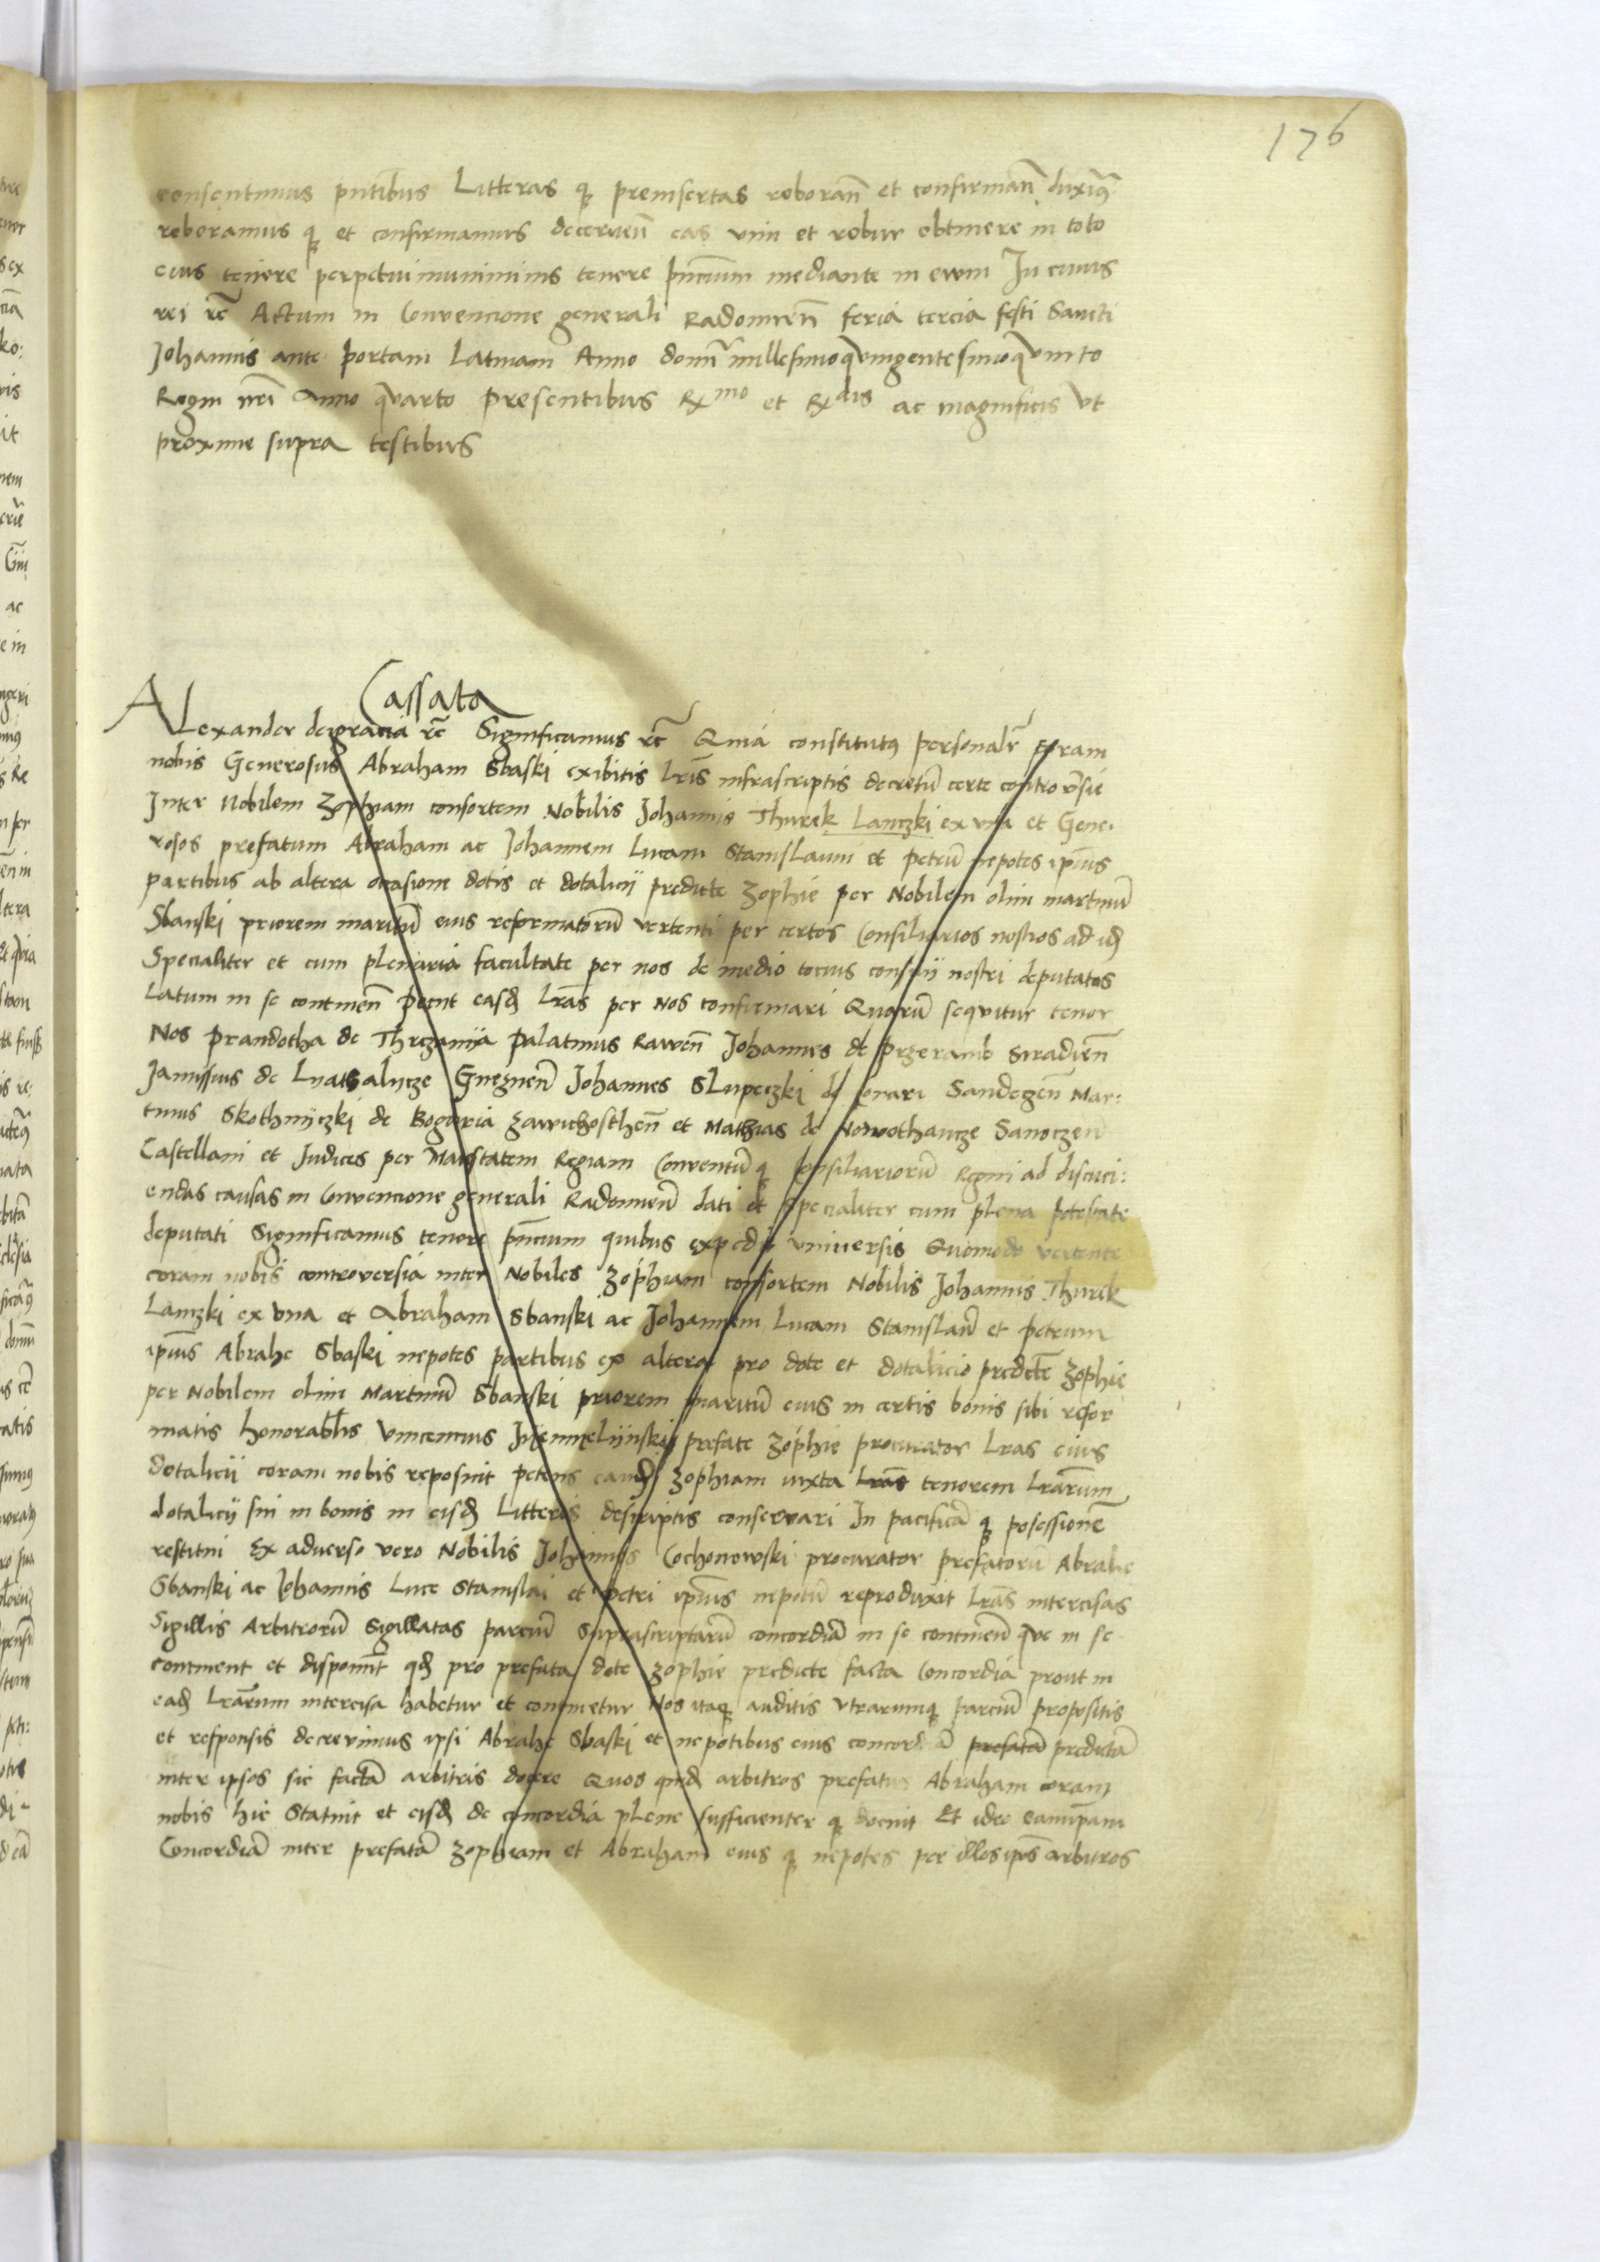 176
consentimus pntibus Litteras q premisertas roborañ et confirmañ duxim9
roboramus q et confirmamus decerneñ eas vim et robur obtinere in toto
eius tenore perpetui muniminis tenore pñcium mediante in ewm In cuius
rei rc Actum in Convencione generali Radomieñ feria tercia festi Sancti
Johannis ante portam Latinam Anno domi millesimoqvingentesimoqvinto
Regni nri Anno qvarto Presentibus Rmo et Rdis ac magnificis vt
proxime supra testibus
Cassata
ALexander deigracia rc Significamus rc Quia constitut9 personalr coram
nobis Generosus Abraham Sbaski exibitis lris infrascriptis decretu certe controvsie
Inter Nobilem Zophiam consortem Nobilis Johannis Thurek Lanczki ex vna et Gene-
rosos prefatum Abraham ac Johannem Lucam Stanislaum et petru nepotes ipius
partibus ab altera ocasione dotis et dotalicii predicte Zophie per Nobilem olim martinu
Sbanski priorem maritu eius reformatoru vertenti per certos Consiliarios nostros ad id
Specialiter et cum plenaria facultate per nos de medio tocius consilii nostri deputatos
Latum in se contineñ petiit easd lras per Nos confirmari Quaru seqvitur tenor
Nos Prandotha de Thrczanija Palatinus Raweñ Johannes de przeramb Siradieñ
Janussius de Gnezneñ Johannes Slupeczki de Conari Sandegeñ Mar:
tinus Skothniczki de Bogoria zawichostheñ et Mathias de Nowothancze Sanoczeñ
Castellani et Judices per Maiestatem Regiam Conventu q Consiliarioru Regni ad discuci:
endas causas in Convencione generali Radomieñ dati et Specialiter cum plena potestate
deputati Significamus tenore pñcium quibus expedit vniuersis Quomodo vertente
coram nobis controversia inter Nobiles Zophiam consortem Nobilis Johannis Thurek
Lanczki ex vna et Abraham Sbanski ac Johannem Lucam Stanislau et petrum
ipius Abrahe Sbaski nepotes partibus ex altera pro dote et dotalicio predcte Zophie
per Nobilem olim Martinu Sbanski priorem maritu eius in certis bonis sibi refor
matis honorablis Vincencius prefate Zophie procurator lras eius
dotalicii coram nobis reposuit petens eand Zophiam iuxta lras tenorem lrarum
dotalicij sui in bonis in eisd Litteris descriptis conservari In pacifica q posessione
restitui Ex adverso vero Nobilis Johannes Cochonowski procurator prefatoru Abrahe
Sbanski ac Johannis Luce Stanislai et petri ipius nepotu reproduxit lras intercisas
Sigillis Arbitroru Sigillatas parciu Suprascriptaru concordia in se contineñ qve in se
continent et disponut qd pro prefata dote Zophie predicte facta Concordia prout in
ead lrarum intercisa habetur et continetur Nos itaq auditis vtrarumq parciu propositis
et responsis decrevimus ipsi Abrahe Sbaski et nepotibus eius concordia prefatam predicta
inter ipsos sic facta arbitris docere Quos quid arbitros prefatus Abraham coram
nobis hic Statuit et eisd de concordia plene sufficienter q docuit Et ideo eamipam
Concordia inter prefata Zophiam et Abraham eius q nepotes per illos ipos arbitros